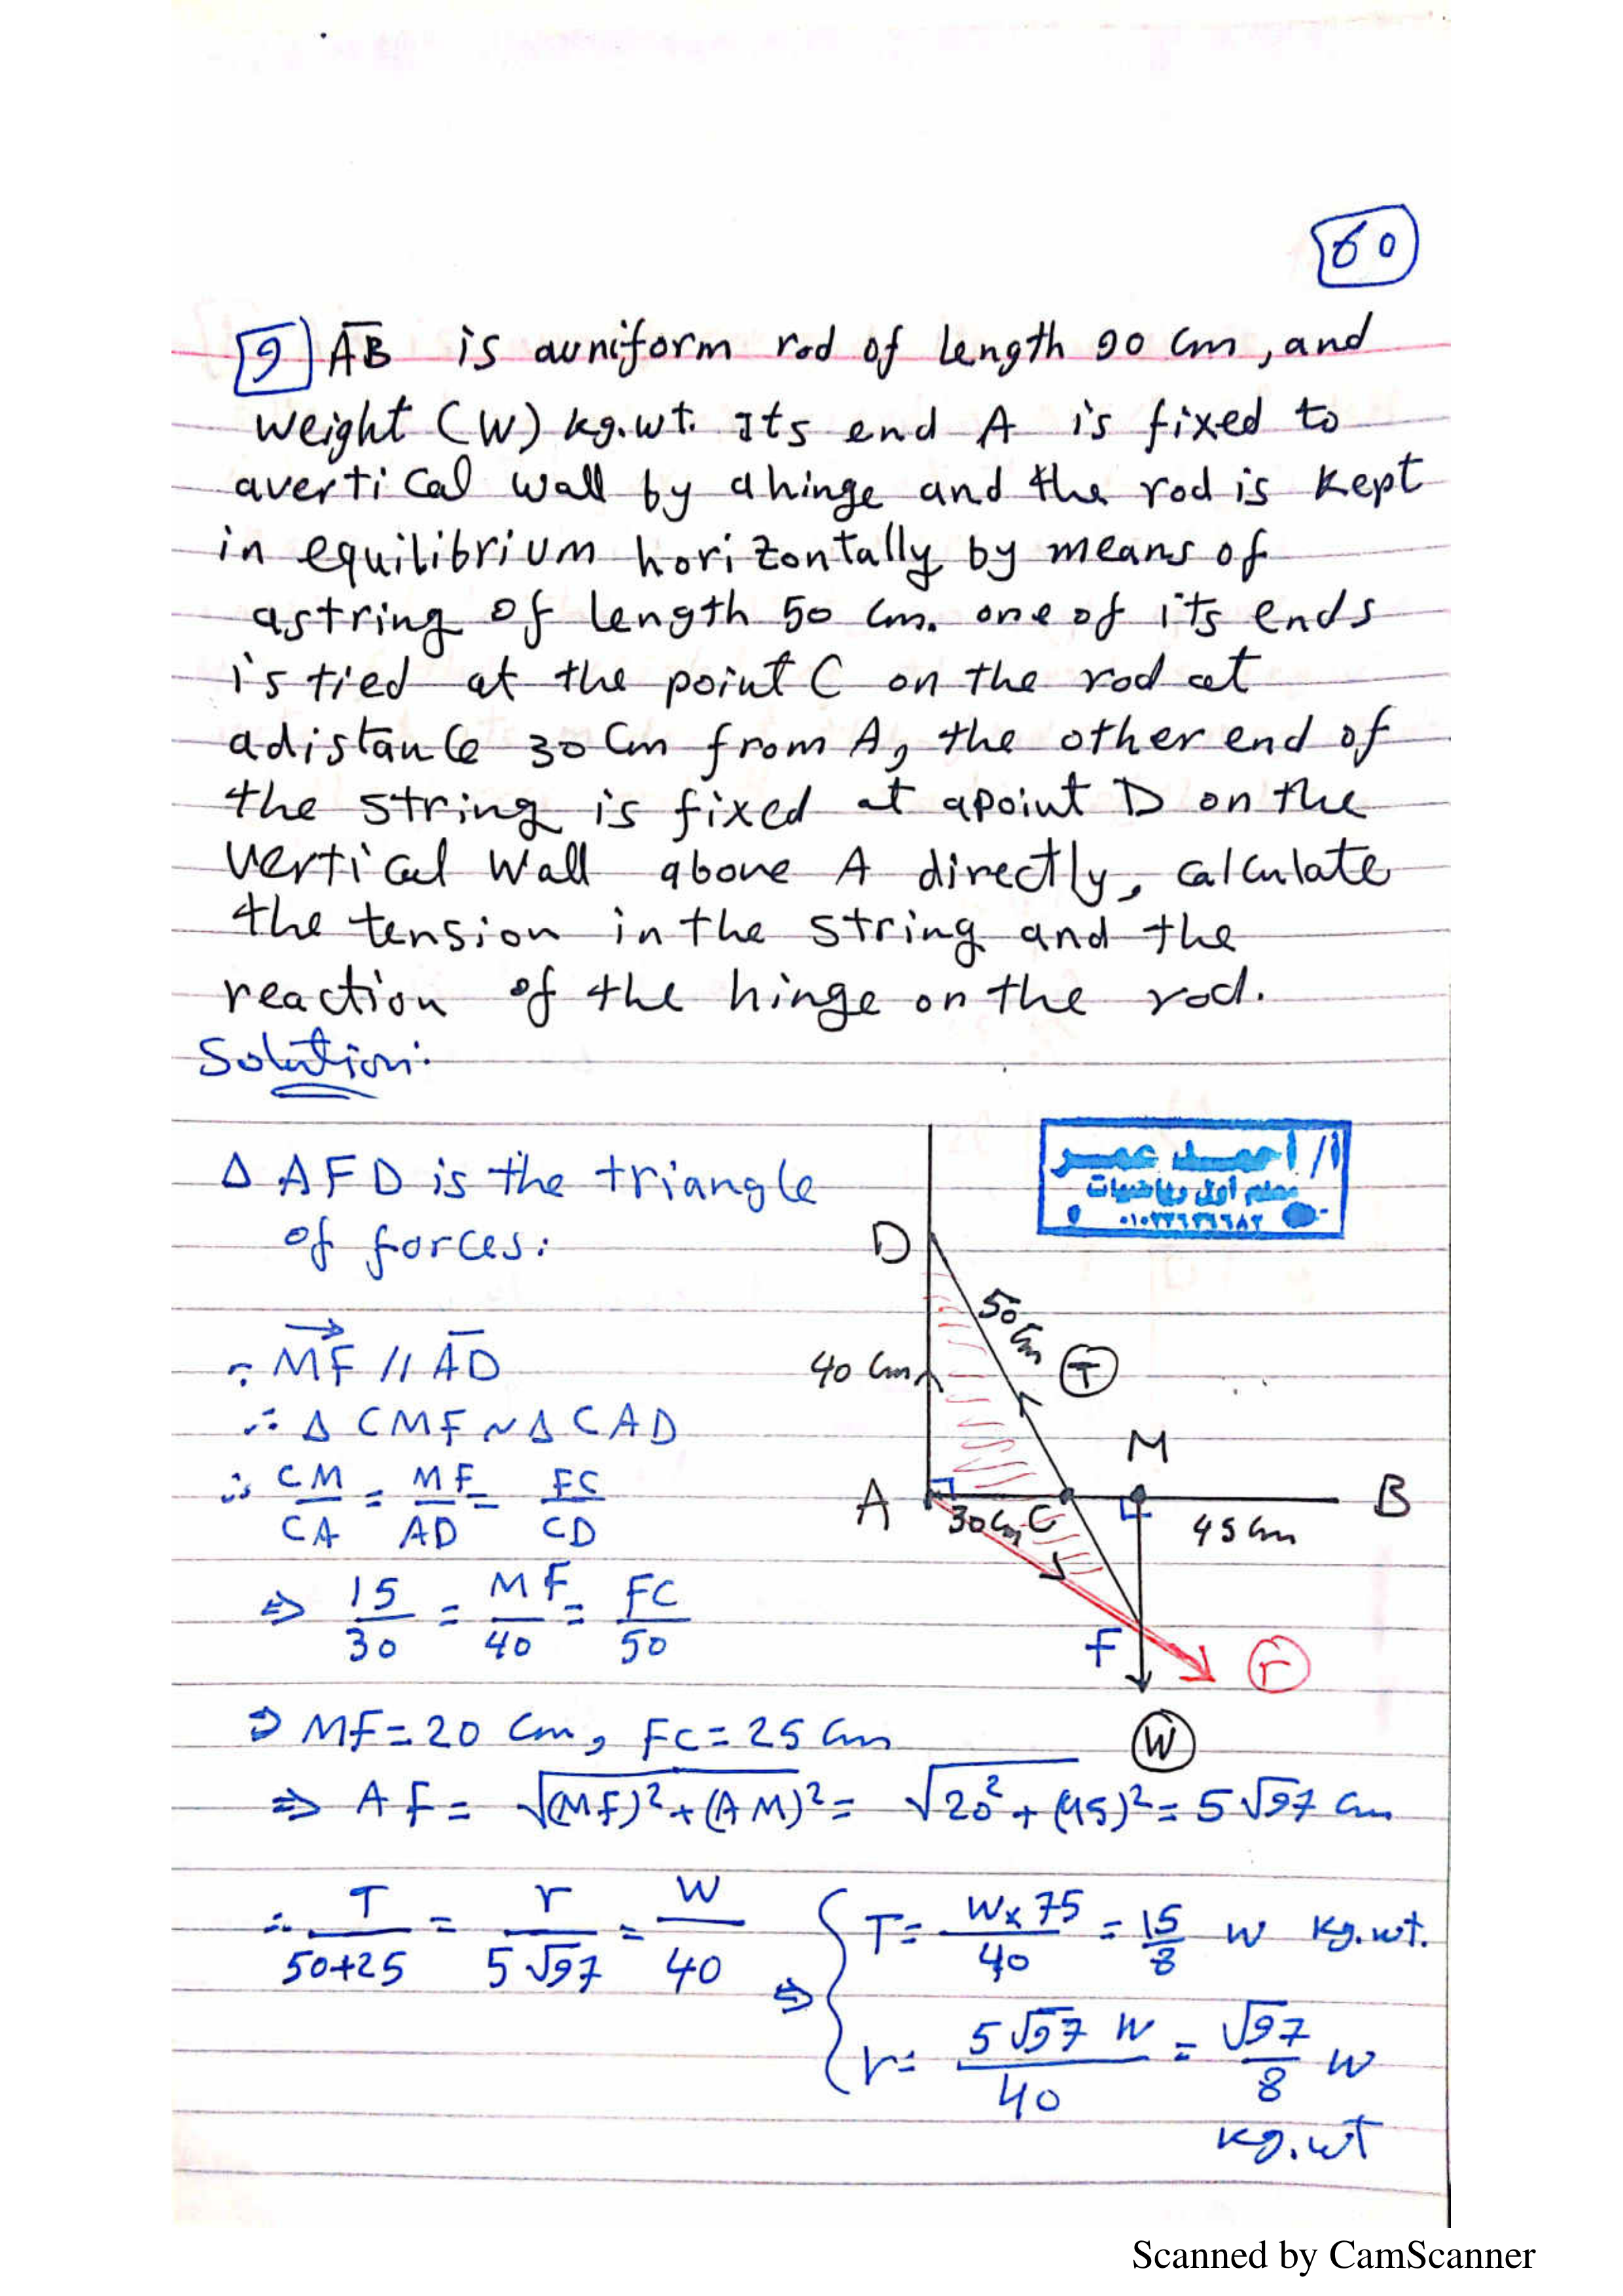 60
9 AB is auniform rod of length 90 cm, and
weight (W) kg.wt. Its end A is fixed to
avertical wall by ahinge and the rod is kept
in equilibrium horizontally by means of
astring of length 50 cm. one of its ends
is tied at the point C on the rod at
adistance 30 cm from A, the other end of
the string is fixed at apoint D on the
vertical wall above A directly, calculate
the tension in the string and the
reaction of the hinge on the rod.
Solution:
أ/ أحمد عمر
معلم أول رياضيات
Δ AFD is the triangle
of forces:
D
50 cm
T
∵ MF // AD
40 cm
∴ Δ CMF ~ Δ CAD
M
A
B
30 cm C
45 cm
∴ CM/CA = MF/AD = FC/CD
⇒ 15/30 = MF/40 = FC/50
F
r
⇒ MF = 20 cm, FC = 25 cm
W
⇒ AF = √(MF)²+(AM)² = √20²+(45)² = 5√97 cm
∴ T/50+25 = r/5√97 = W/40 ⇒ { T = W×75/40 = 15/8 W kg.wt.
r = 5√97 W/40 = √97/8 W
kg.wt
Scanned by CamScanner